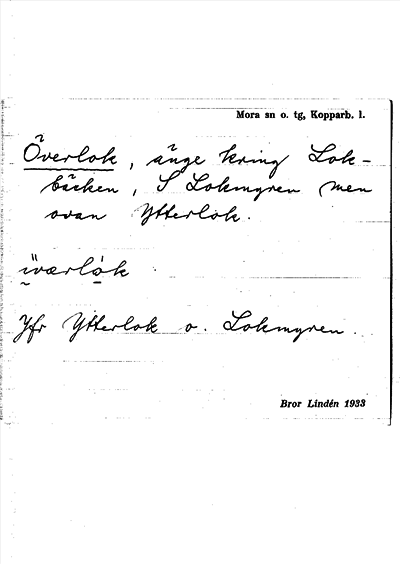 Mora sn o. tg, Kopparb. l.
Överlok, änge kring Lok-
bäcken, S Lokmyren men
ovan Ytterlok.
i̮værlo̠k
Jfr Ytterlok o. Lokmyren.
Bror Lindén 1933